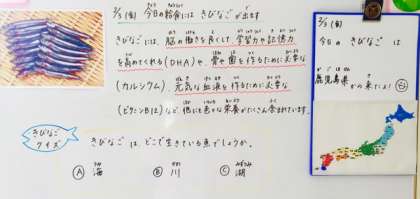 2/3(金) 今日の給食に きびなご が出ます
きびなごには、脳の働きを良くして学習力や記憶力
を高めてくれる(DHA)や、骨や歯を作るために必要な
(カルシウム)、元気な血液を作るために必要な
(ビタミンB12)など、他にも色々な栄養がたくさん含まれています。
きびなご
クイズ
きびなご は、どこで生きている魚でしょうか。
Ⓐ 海 Ⓑ 川 Ⓒ 湖
2/3(金)
今日の きびなご は
鹿児島県 から来たよ!